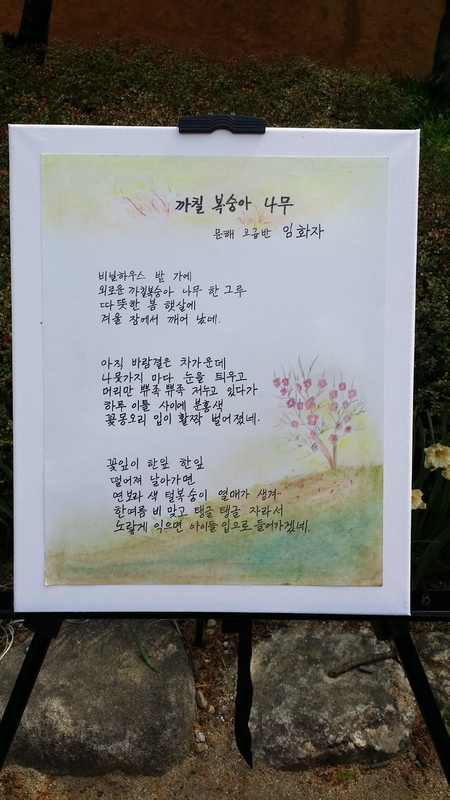 까칠 복숭아 나무
문해 고급반 임화자
비닐하우스 밭 가에
외로운 까칠복숭아 나무 한 그루
따뜻한 봄 햇살에
겨울 잠에서 깨어 났네.
아직 바람결은 차가운데
나뭇가지 마다 눈을 틔우고
머리만 쀼족 쀼족 저누고 있다가
하루 이틀 사이에 분홍색
꽃몽오리 입이 활짝 벌어졌네.
꽃잎이 한잎 한잎
떨어져 날아가면
연보라 색 털복숭이 열매가 생겨
한여름 비 맞고 탱글 탱글 자라서
노랗게 익으면 아이들 입으로 들어가겠네.